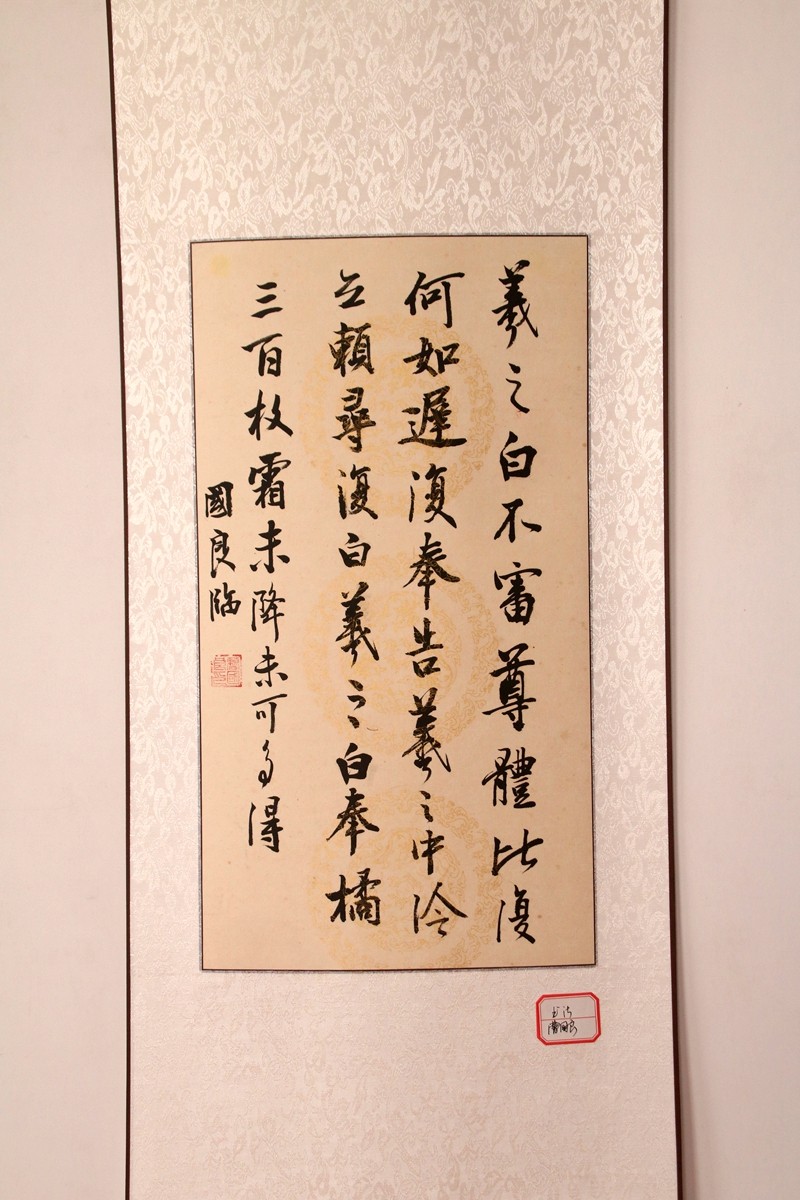 羲之白不審尊體比復
何如遲復奉告羲之中冷
無賴尋復白羲之白奉橘
三百枚霜未降未可多得
國良臨
書法